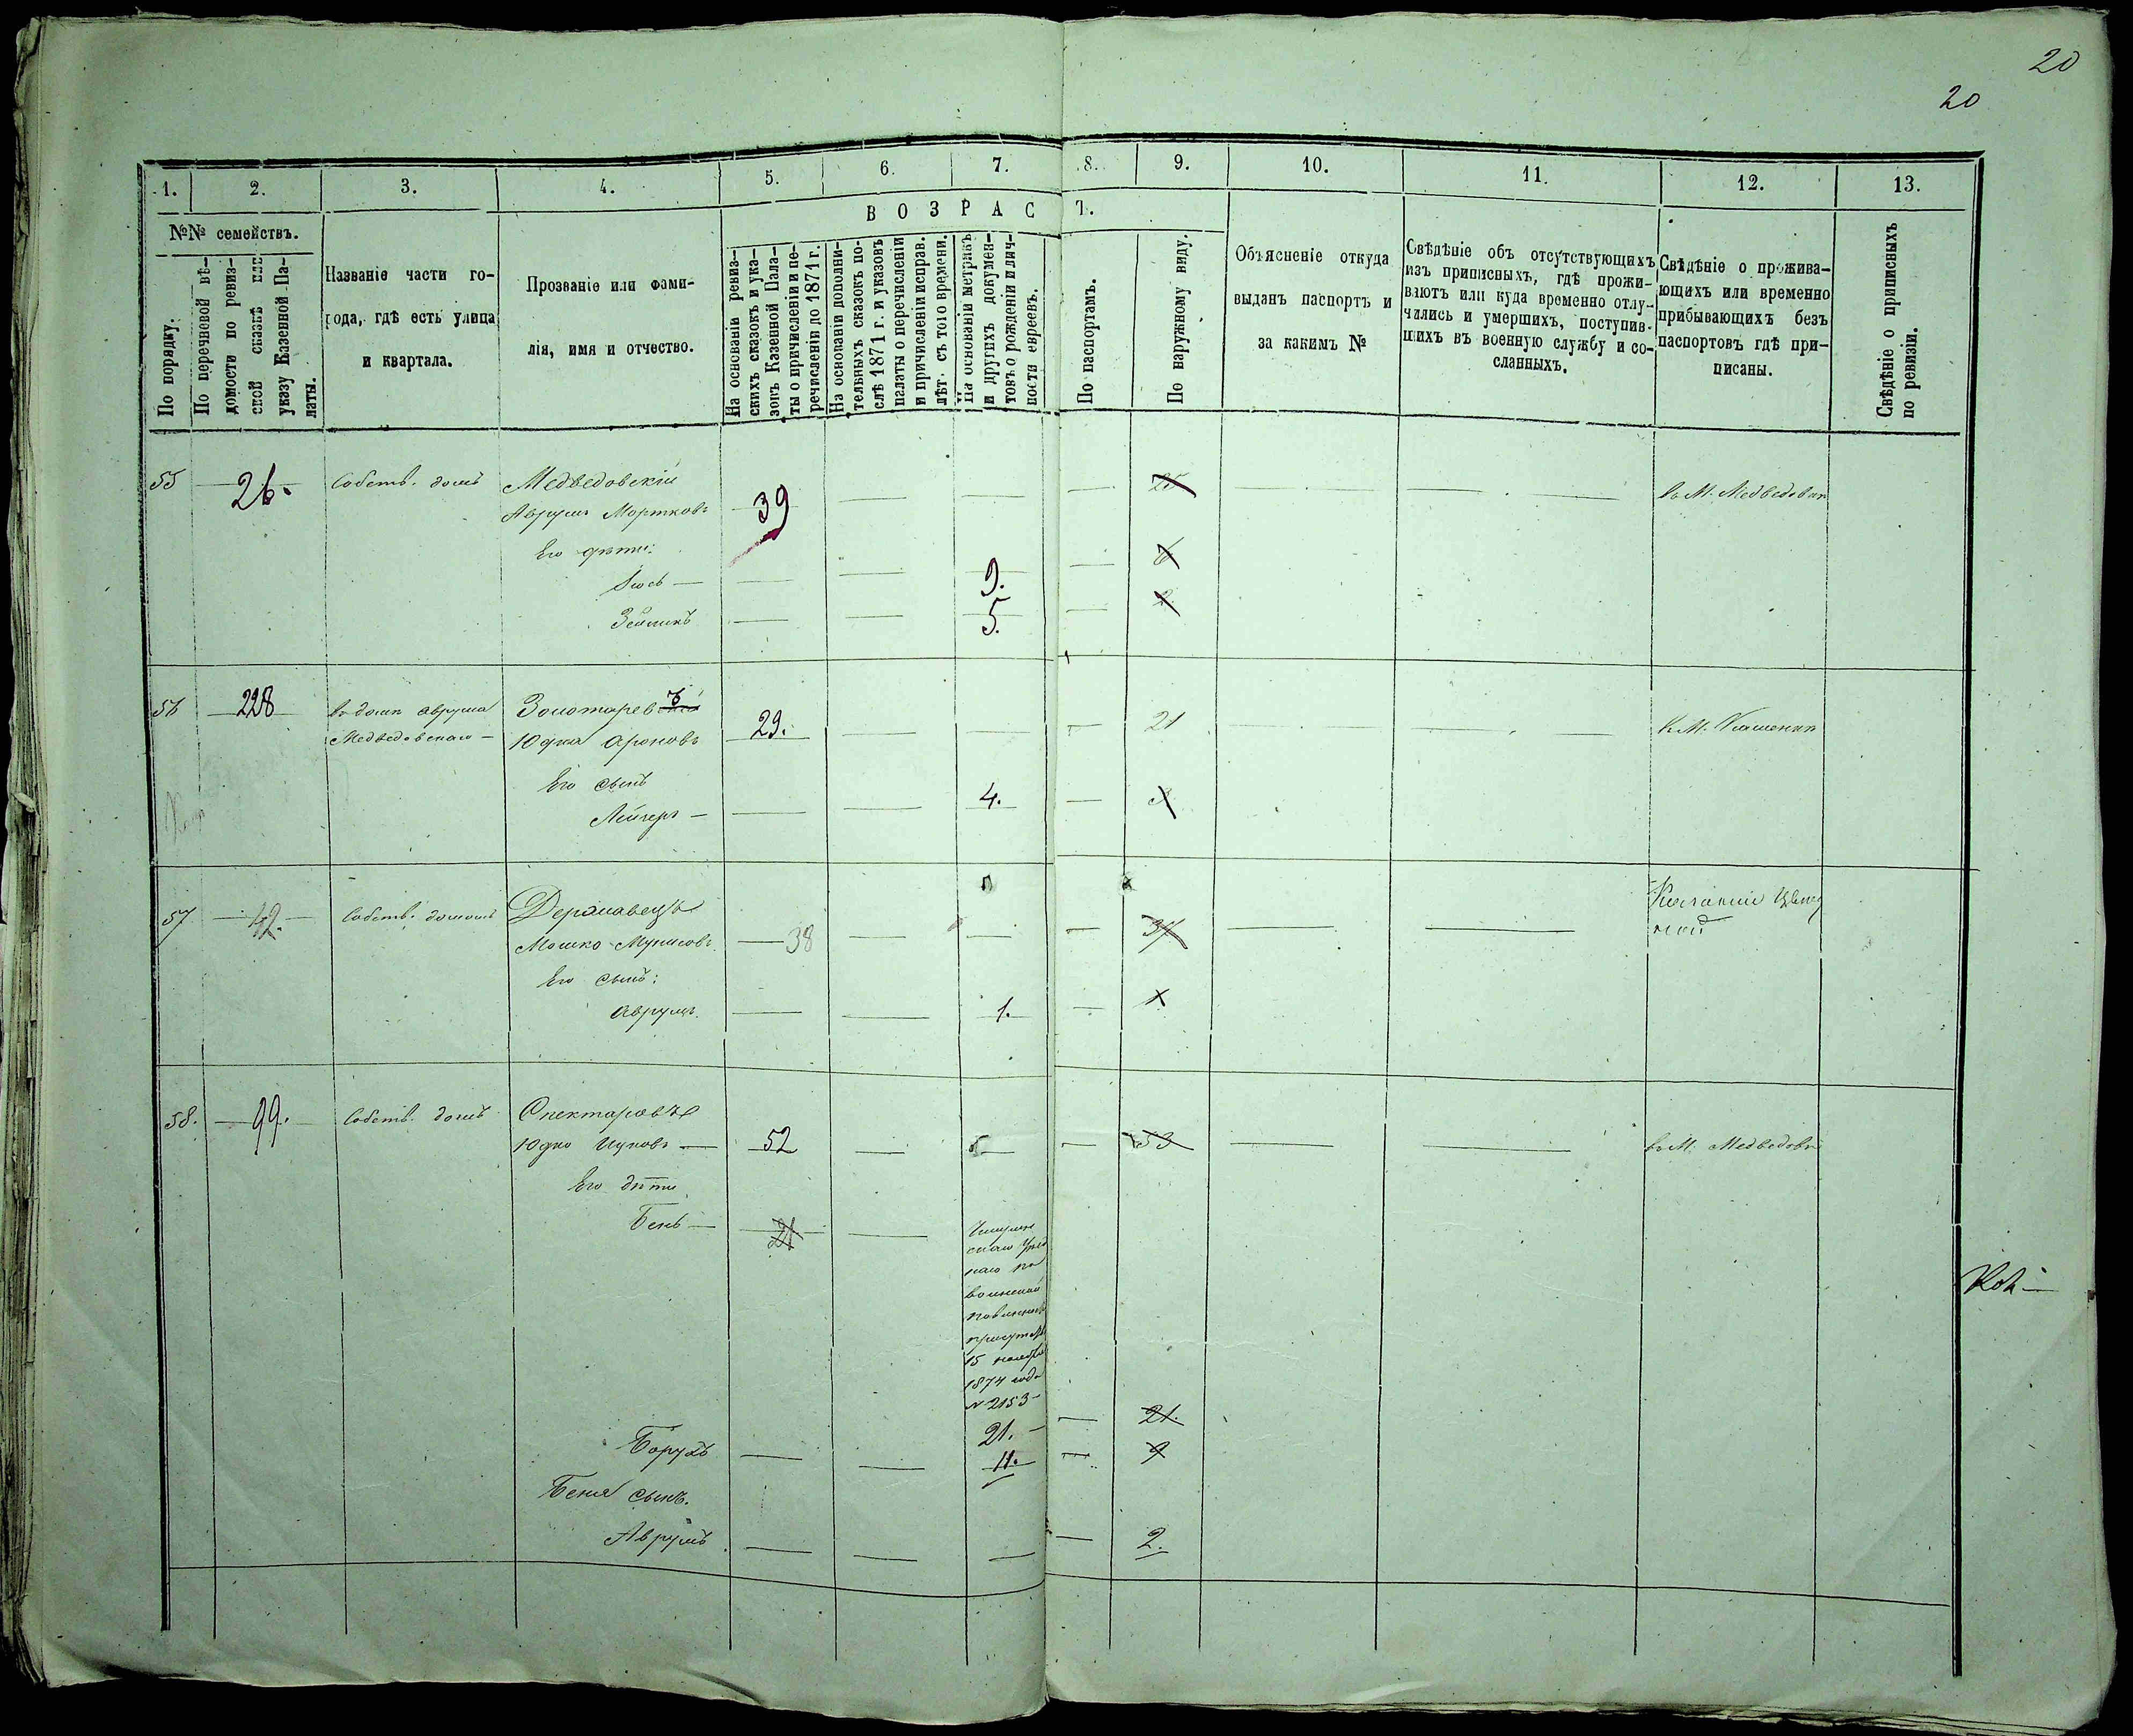 20
20
1. 2. 3. 4. 5. 6. 7. 8. 9. 10. 11. 12. 13.
№№ семействъ.
По порядку.
По перечневой вѣ-
домости по ревиз-
ской сказкѣ или
указу Казенной Па-
латы.
Названіе части го-
рода, гдѣ есть улица
и квартала.
Прозваніе или фами-
лія, имя и отчество.
ВОЗРАСТ.
На основаніи ревиз-
скихъ сказокъ и ука-
зовъ Казенной Пала-
ты о причисленіи и пе-
речисленіи до 1871 г.
На основаніи дополни-
тельныхъ сказокъ по-
слѣ 1871 г. и указовъ
палаты о перечисленіи
и причисленіи исправ.
лѣт. съ того времени.
На основаніи метрикъ
и другихъ докумен-
товъ о рожденіи и лич-
ности евреевъ.
По паспортамъ.
По наружному виду.
Объясненіе откуда
выданъ паспортъ и
за какимъ №
Свѣдѣніе объ отсутствующихъ
изъ приписныхъ, гдѣ прожи-
ваютъ или куда временно отлу-
чились и умершихъ, поступив-
шихъ въ военную службу и со-
сланныхъ.
Свѣдѣніе о прожива-
ющихъ или временно
прибывающихъ безъ
паспортовъ гдѣ при-
писаны.
Свѣдѣніе о приписныхъ
по ревизіи.
55 26. Собств. домъ Медведовскій
Аврумъ Мортковъ 39 въ М. Медведовк
Его дѣти:
Іось 9. 6
Зейликъ 5. 2
56 228 въ домѣ Аврума Золотаревъ
Медведовскаго Юдка Ароновъ 29. 21
Его сынъ
Лейзеръ 4.
57 42. Собств. домомъ Державецъ
Мошко Мунисовъ 38 37
Его сынъ:
Аврумъ. 1.
58. 99. Собств. домъ Спектаровъ
Юдко Ицковъ 52 53 въ М. Медведовк
Его дѣти
Бень 21
воинской
15 ноября
1874 года
№ 2153
21. 21.
Борухъ 11. 9
Беня сынъ.
Аврумъ 2.